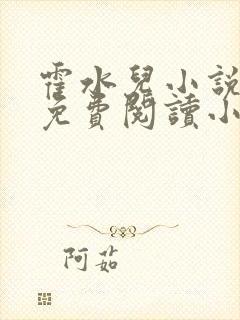 霍水兒小說
免費閱讀小
阿茹